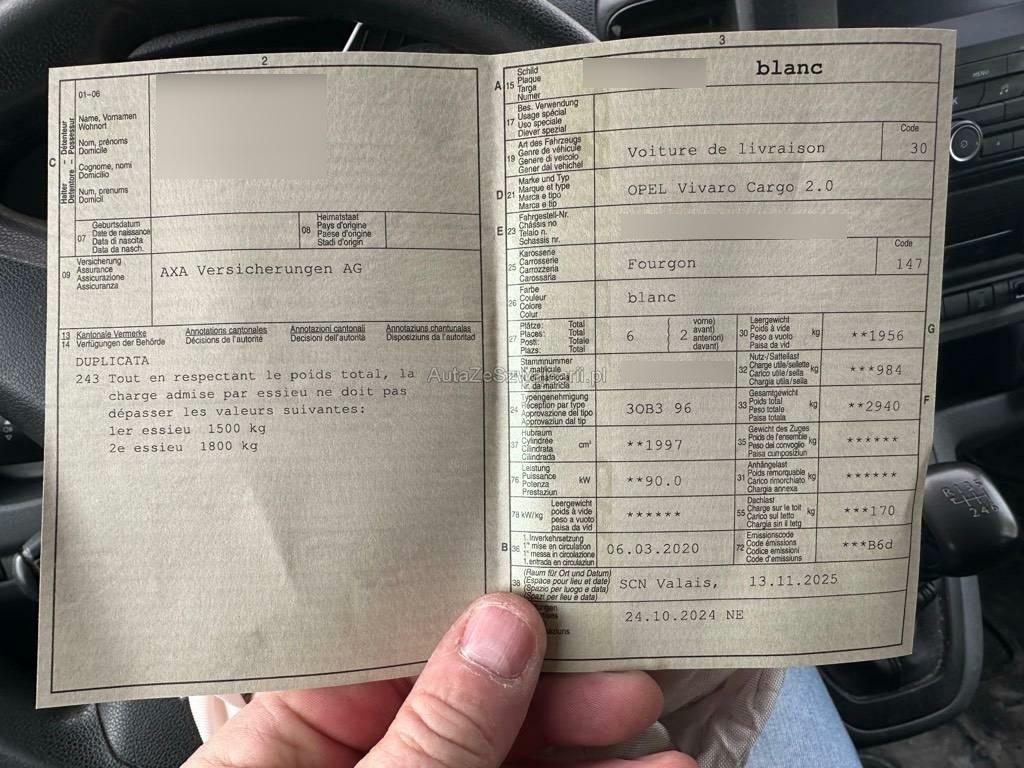 2
01-06
C
Halter – Détenteur
Detentore – Possessur
Name, Vornamen
Wohnort
Nom, prénoms
Domicile
Cognome, nomi
Domicilio
Num, prenums
Domicil
07
Geburtsdatum
Date de naissance
Data di nascita
Data da nasch.
08
Heimatstaat
Pays d'origine
Paese d'origine
Stadi d'origin
09
Versicherung
Assurance
Assicurazione
Assicuranza
AXA Versicherungen AG
13
14
Kantonale Vermerke
Verfügungen der Behörde
Annotations cantonales
Décisions de l'autorité
Annotazioni cantonali
Decisioni dell'autorità
Annotaziuns chantunalas
Disposiziuns da l'autoritad
DUPLICATA
243 Tout en respectant le poids total, la
charge admise par essieu ne doit pas
dépasser les valeurs suivantes:
1er essieu 1500 kg
2e essieu 1800 kg
3
A 15
Schild
Plaque
Targa
Numer
blanc
17
Bes. Verwendung
Usage spécial
Uso speciale
Diever spezial
19
Art des Fahrzeugs
Genre de véhicule
Genere di veicolo
Gener dal vehichel
Voiture de livraison
Code
30
D 21
Marke und Typ
Marque et type
Marca e tipo
Marca e tip
OPEL Vivaro Cargo 2.0
E 23
Fahrgestell-Nr.
Châssis no
Telaio n.
Schassis nr.
25
Karosserie
Carrosserie
Carrozzeria
Carossaria
Fourgon
Code
147
26
Farbe
Couleur
Colore
Colur
blanc
27
Plätze: Total
Places: Total
Posti: Totale
Plazs: Total
6
2
vorne)
avant)
anteriori)
davant)
30
Leergewicht
Poids à vide
Peso a vuoto
Paisa da vid
kg
**1956
G
Stammnummer
N° matricule
N. di matricola
Nr. da matricla
32
Nutz-/Sattellast
Charge utile/sellette
Carico utile/sella
Chargia utila/sella
kg
***984
24
Typengenehmigung
Réception par type
Approvazione del tipo
Approvaziun dal tip
3OB3 96
33
Gesamtgewicht
Poids total
Peso totale
Paisa totala
kg
**2940
F
37
Hubraum
Cylindrée
Cilindrata
Cilindrada
cm³
**1997
35
Gewicht des Zuges
Poids de l'ensemble
Peso del convoglio
Paisa cumposiziun
kg
******
76
Leistung
Puissance
Potenza
Prestaziun
kW
**90.0
31
Anhängelast
Poids remorquable
Carico rimorchiato
Chargia annexa
kg
******
78 kW/kg
Leergewicht
poids à vide
peso a vuoto
paisa da vid
******
55
Dachlast
Charge sur le toit
Carico sul tetto
Chargia sin il tetg
kg
***170
B 36
1. Inverkehrsetzung
1re mise en circulation
1a messa in circolazione
1. entrada en circulaziun
06.03.2020
72
Emissionscode
Code émissions
Codice emissioni
Code d'emissiuns
***B6d
38
(Raum für Ort und Datum)
(Espace pour lieu et date)
(Spazio per luogo e data)
(Spazi per lieu e data)
SCN Valais, 13.11.2025
24.10.2024 NE
AutaZeSzwajcarii.pl
MENU